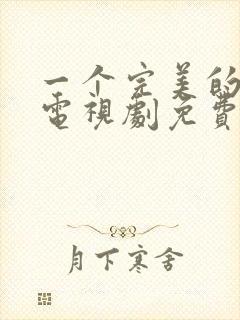 一个完美的
電視劇免費
月下寒舍